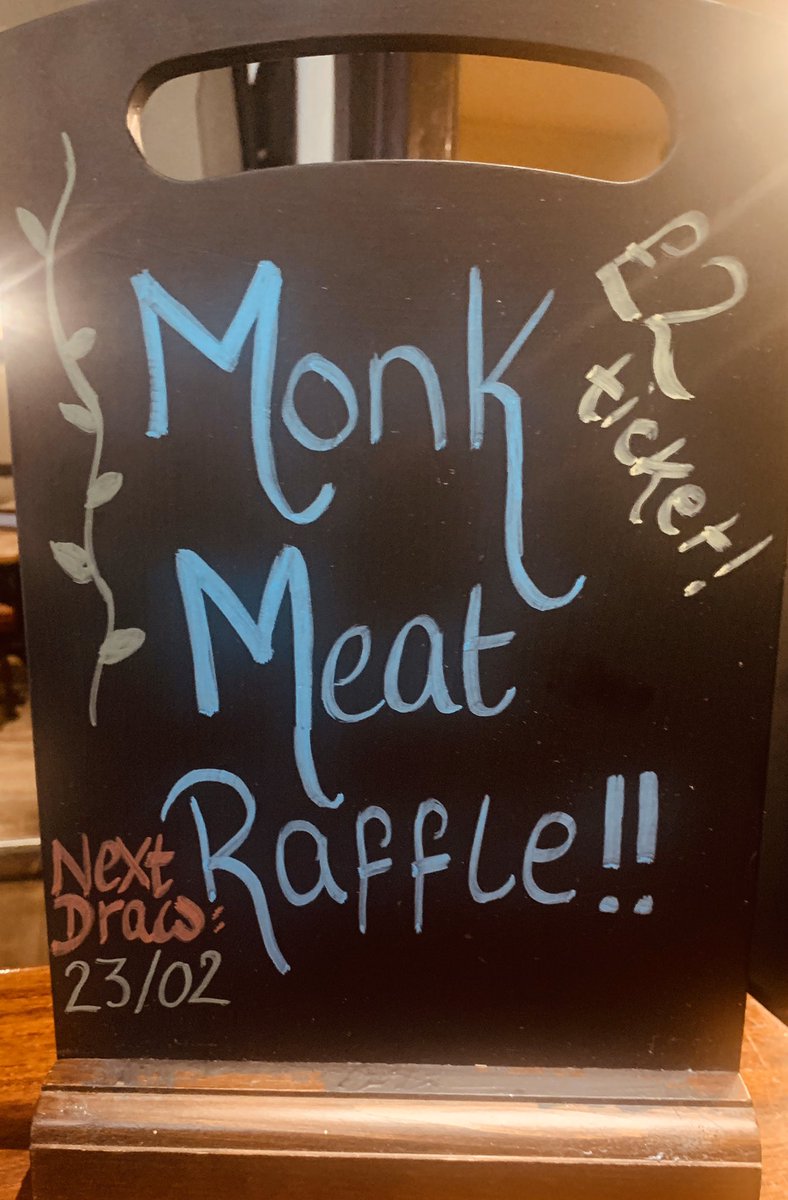 £2
ticket!
Monk
Meat
Raffle!!
Next
Draw:
23/02